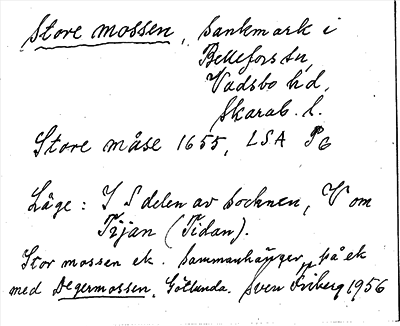 Store mossen, sankmark i
Bellefors sn,
Vadsbo hd,
Skarab. l.
Store måse 1655, LSA P6
Läge: I S delen av socknen, V om
Tijan (Tidan).
Stor mossen ek. sammanhänger på ek
med Degermossen, Götlunda. Sven Friberg 1956